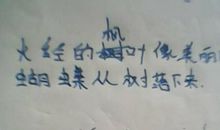 火红的枫叶像美丽
蝴蝶从树落下来.